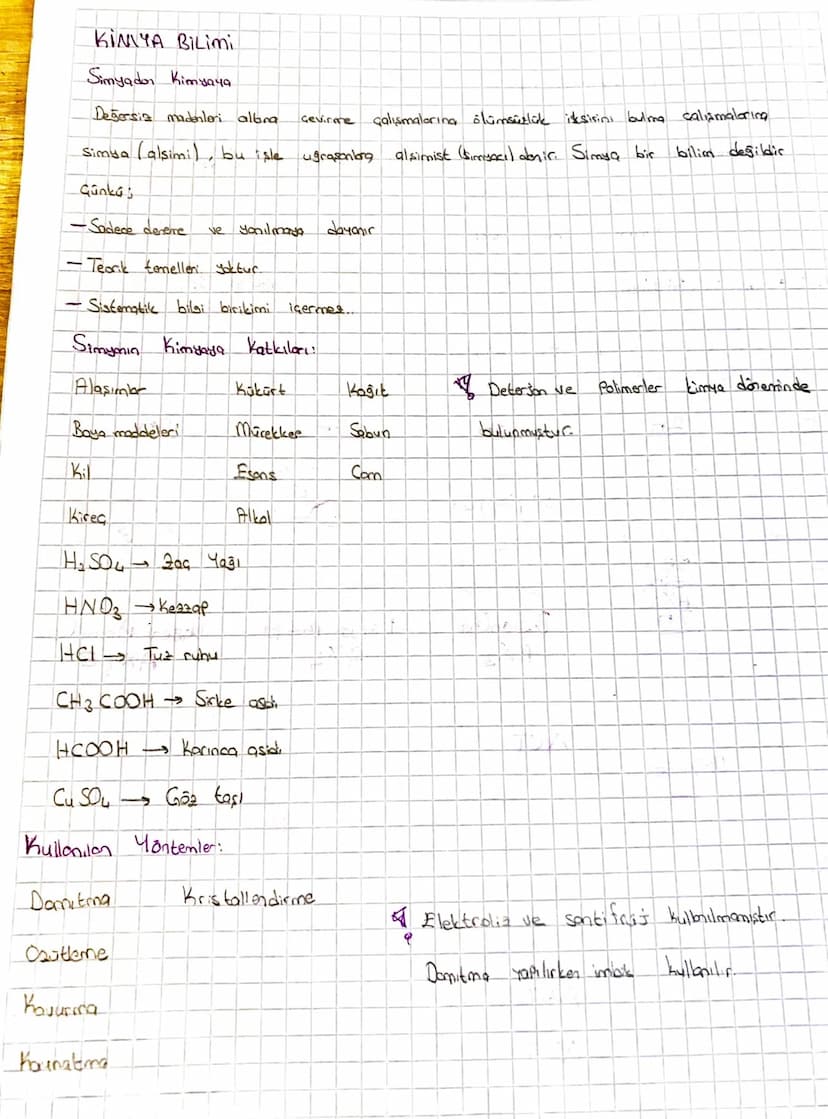 KİMYA BİLİMİ
Simyadan Kimyaya
Değersiz madenleri altına çevirme çalışmalarına ölümsüzlük iksirini bulma çalışmalarına
simya (alşimi), bu işle uğraşanlara alşimist (simyacı) denir. Simya bir bilim değildir
Çünkü;
- Sadece deneme ve yanılmaya dayanır
- Teorik temelleri yoktur
- Sistematik bilgi birikimi içermez..
Simyanın Kimyaya Katkıları:
Alaşımlar Kükürt Kağıt Deterjan ve Polimerler kimya döneminde
Boya maddeleri Mürekkep Sabun bulunmuştur.
Kil Esans Cam
Kireç Alkol
H₂SO₄ → Zaç Yağı
HNO₃ → Kezzap
HCl → Tuz ruhu
CH₃COOH → Sirke asidi
HCOOH → Karınca asidi
CuSO₄ → Göz taşı
Kullanılan Yöntemler:
Damıtma Kristallendirme
Elektroliz ve santifrüj kullanılmamıştır.
Özütleme
Damıtma yapılırken imbik kullanılır.
Kavurma
Kaynatma